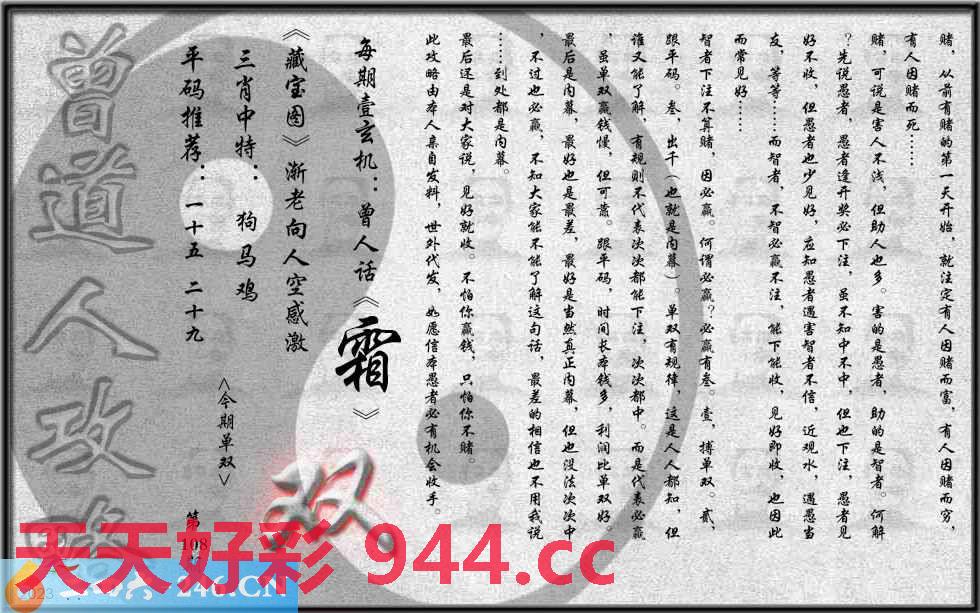 赌，从前有赌的第一天开始，就注定有人因赌而富，有人因赌而穷，
有人因赌而死……
赌，可说是害人不浅，但助人也多。害的是愚者，助的是智者。何解
？先说愚者，愚者逢开奖必下注，虽不知中不中，但也下注，愚者见
好不收，但愚者也少见好，应知愚者遇害智者不信，近观水，遇愚当
友，等等……而智者，不智必赢不注，能下能收，见好即收，也因此
而常见好……
智者下注不算赌，因必赢。何谓必赢？必赢有叁。壹，搏单双。贰，
跟平码。叁，出千（也就是内幕）。单双有规律，这是人人都知，但
谁又能了解，有规则不代表次次都能下注，次次都中。而是代表必赢
，虽单双赢钱慢，但可靠。跟平码，时间长本钱多，利润比单双好。
最后是内幕，最好也是最差，最好是当然真正内幕，但也没法次次中
，不过也必赢，不知大家能不能了解这句话，最差的相信也不用我说
……到处都是内幕。
最后还是对大家说，见好就收。不怕你赢钱，只怕你不赌。
此攻略由本人亲自发料，世外代发，如愿信本愚者必有机会收手。
每期壹玄机：曾人话《霜》
《藏宝图》渐老向人空感激
三肖中特：狗马鸡
平码推荐：一十五 二十九
<今期单双>
双
第
108
曾道人攻略
天天好彩 944.cc
246.CN
2023